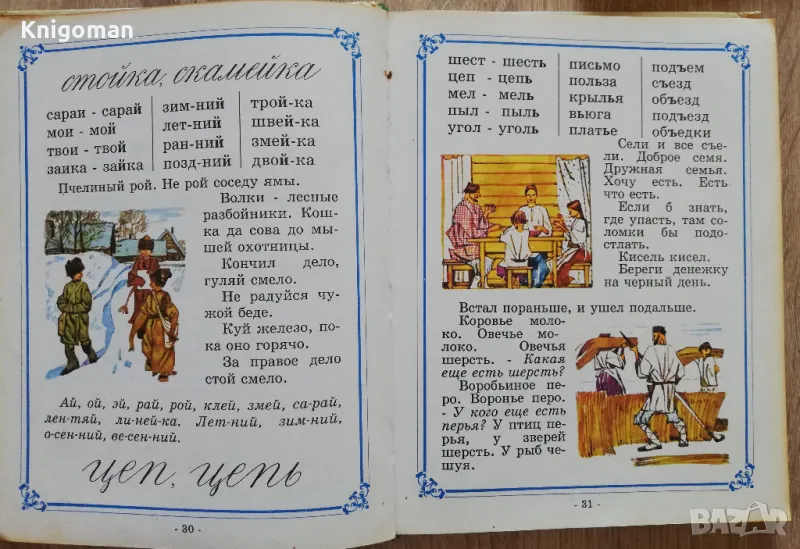 Knigoman
стойка, скамейка
сараи - сарай зим-ний трой-ка
мои - мой лет-ний швей-ка
твои - твой ран-ний змей-ка
заика - зайка позд-ний двой-ка
Пчелиный рой. Не рой соседу ямы.
Волки - лесные
разбойники. Кош-
ка да сова до мы-
шей охотницы.
Кончил дело,
гуляй смело.
Не радуйся чу-
жой беде.
Куй железо, по-
ка оно горячо.
За правое дело
стой смело.
Ай, ой, эй, рай, рой, клей, змей, са-рай,
лен-тяй, ли-ней-ка. Лет-ний, зим-ний,
о-сен-ний, ве-сен-ний.
цеп, цепь
- 30 -
шест - шесть письмо подъем
цеп - цепь польза съезд
мел - мель крылья объезд
пыл - пыль вьюга подъезд
угол - уголь платье объедки
Сели и все съе-
ли. Доброе семя.
Дружная семья.
Хочу есть. Есть
что есть.
Если б знать,
где упасть, там со-
ломки бы подо-
стлать.
Кисель кисел.
Береги денежку
на черный день.
Встал пораньше, и ушел подальше.
Коровье моло-
ко. Овечье мо-
локо. Овечья
шерсть. - Какая
еще есть шерсть?
Воробьиное пе-
ро. Воронье перо.
- У кого еще есть
перья? У птиц пе-
рья, у зверей
шерсть. У рыб че-
шуя.
- 31 -
BAZAR